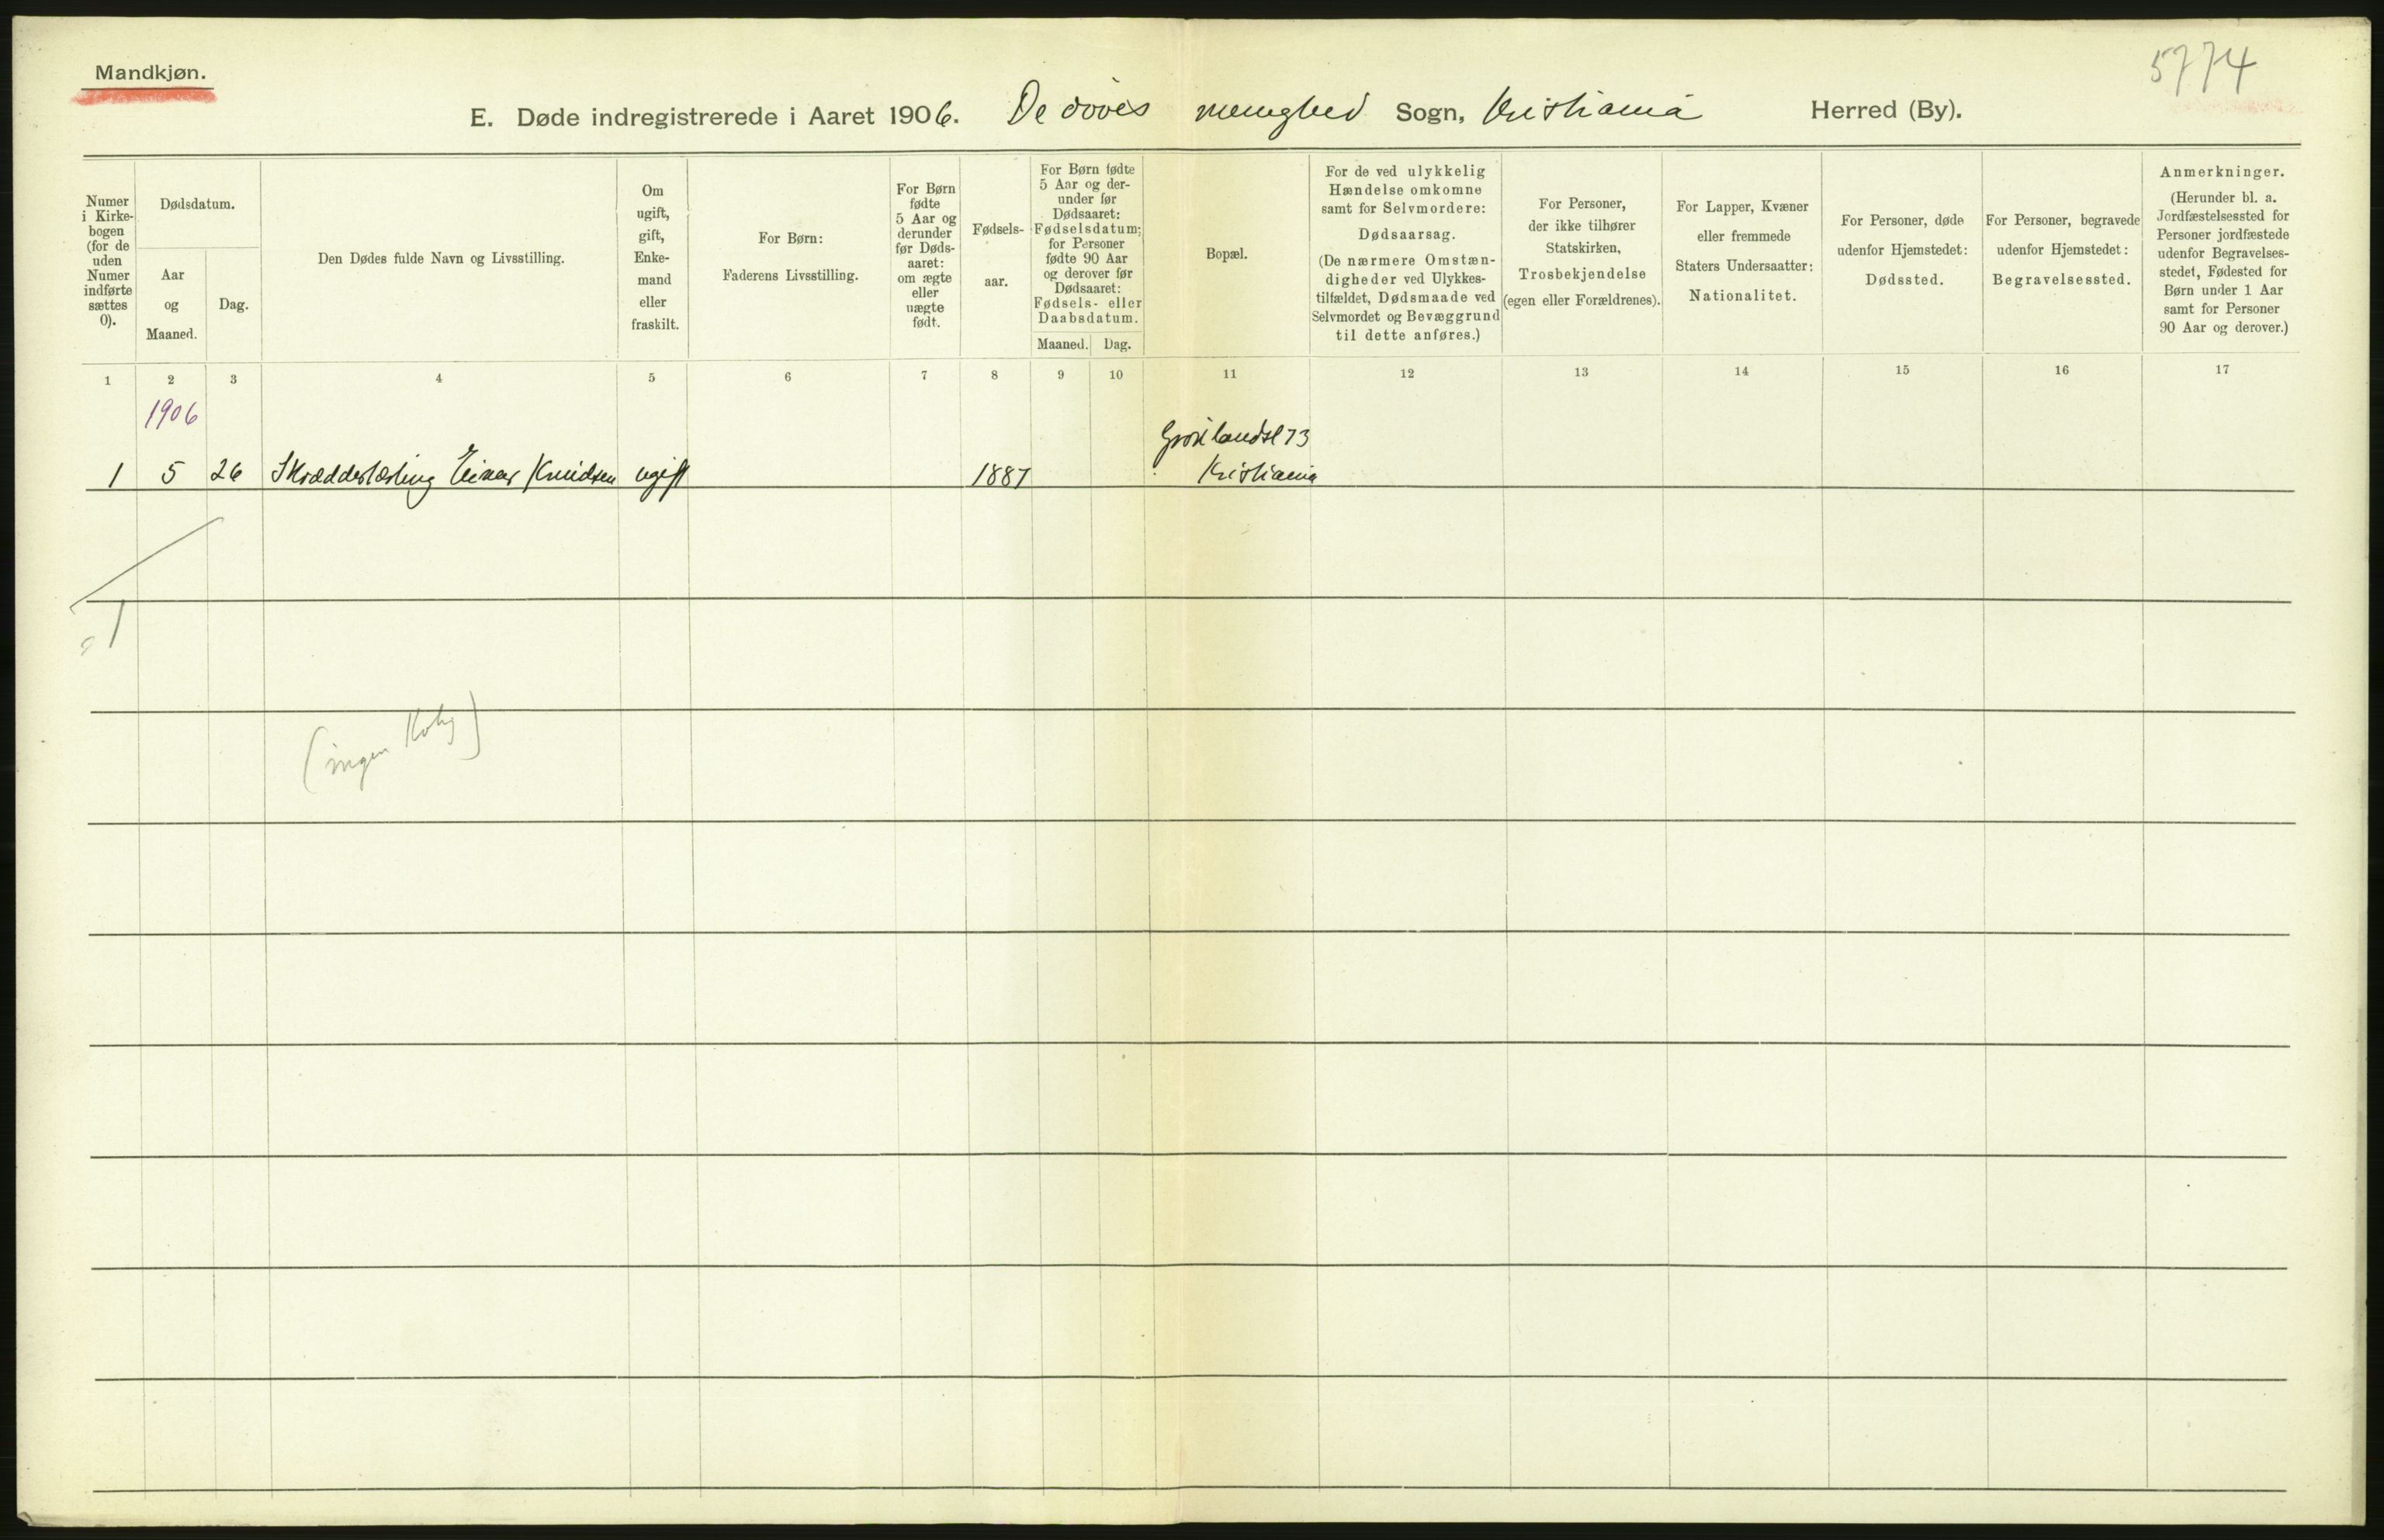 Mandkjøn.
5774
E. Døde indregistrerede i Aaret 1906. De døves menighed Sogn, Kristiania Herred (By).
Numer
i Kirke-
bogen
(for de
uden
Numer
indførte
sættes
0).
Dødsdatum.
Aar
og
Maaned.
Dag.
Den Dødes fulde Navn og Livsstilling.
Om
ugift,
gift,
Enke-
mand
eller
fraskilt.
For Børn:
Faderens Livsstilling.
For Børn
fødte
5 Aar og
derunder
før Døds-
aaret:
om ægte
eller
uægte
født.
Fødsels-
aar.
For Børn fødte
5 Aar og der-
under før
Dødsaaret:
Fødselsdatum;
for Personer
fødte 90 Aar
og derover før
Dødsaaret:
Fødsels- eller
Daabsdatum.
Maaned. Dag.
Bopæl.
For de ved ulykkelig
Hændelse omkomne
samt for Selvmordere:
Dødsaarsag.
(De nærmere Omstæn-
digheder ved Ulykkes-
tilfældet, Dødsmaade ved
Selvmordet og Bevæggrund
til dette anføres.)
For Personer,
der ikke tilhører
Statskirken,
Trosbekjendelse
(egen eller Forældrenes).
For Lapper, Kvæner
eller fremmede
Staters Undersaatter:
Nationalitet.
For Personer, døde
udenfor Hjemstedet:
Dødssted.
For Personer, begravede
udenfor Hjemstedet:
Begravelsessted.
Anmerkninger.
(Herunder bl. a.
Jordfæstelsessted for
Personer jordfæstede
udenfor Begravelses-
stedet, Fødested for
Børn under 1 Aar
samt for Personer
90 Aar og derover.)
1 2 3 4 5 6 7 8 9 10 11 12 13 14 15 16 17
1906
Grønlandsl 73
1 5 26 Skrædderlærling Einar Knudsen ugift 1887 Kristiania
1
(ingen